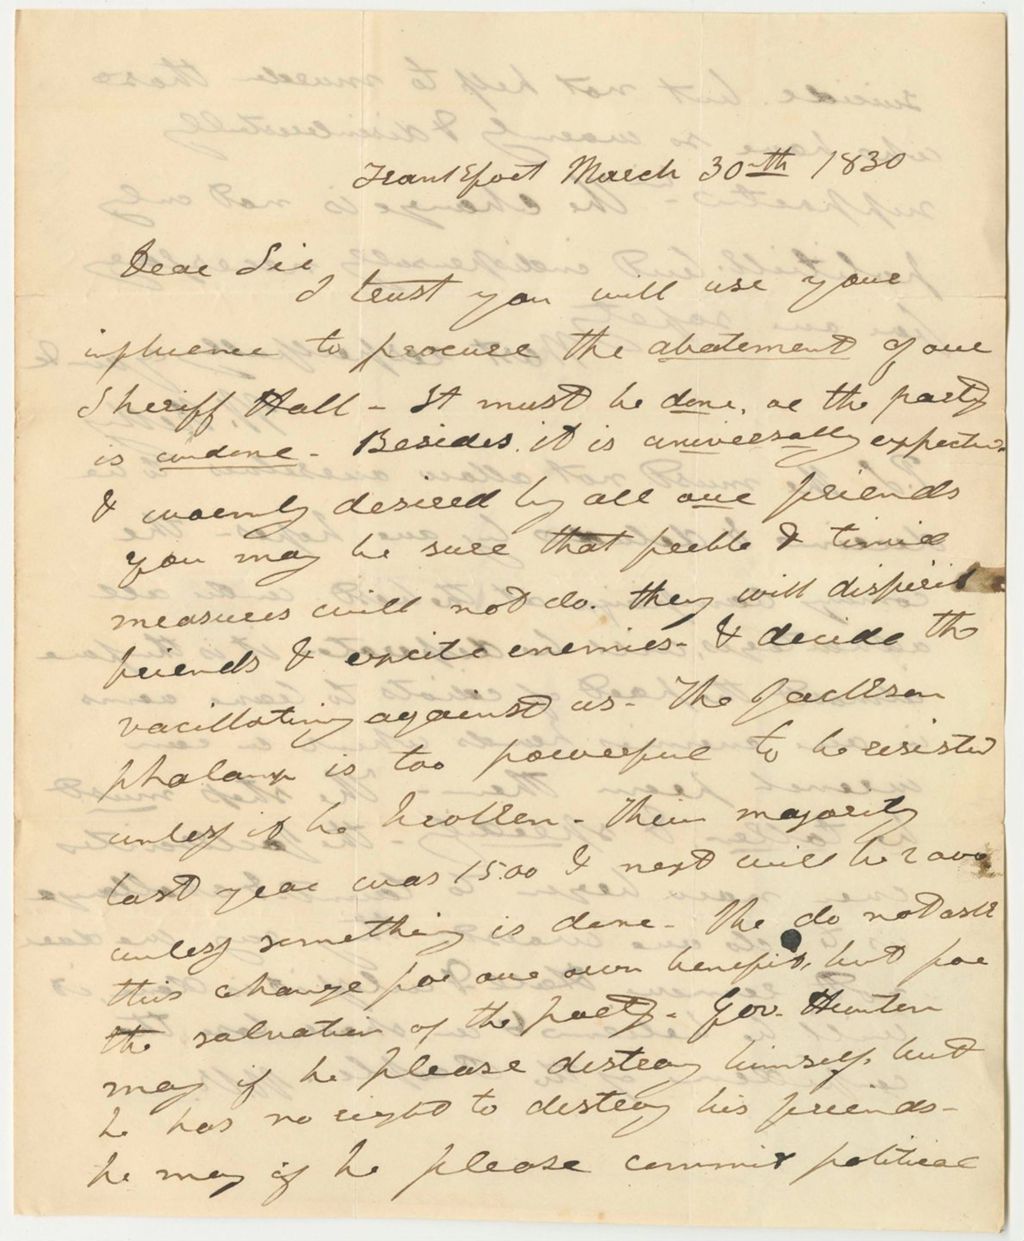 Frankfort March 30th 1830
Dear Sir
I trust you will use your
influence to procure the abatement of our
Sheriff Hall - It must be done, or the party
is undone - Besides, it is universally expected
& warmly desired by all our friends
you may be sure that feeble & timid
measures will not do. they will dispirit
friends & excite enemies - & decide the
vacillating against us - The Jackson
phalanx is too powerful to be resisted
unless it be broken - Their majority
last year was 1500 & next will be 2000
unless something is done - We do not ask
this change for our own benefit, but for
the salvation of the party - Gov. Hunton
may if he please destroy himself, but
he has no right to destroy his friends -
he may if he please commit political